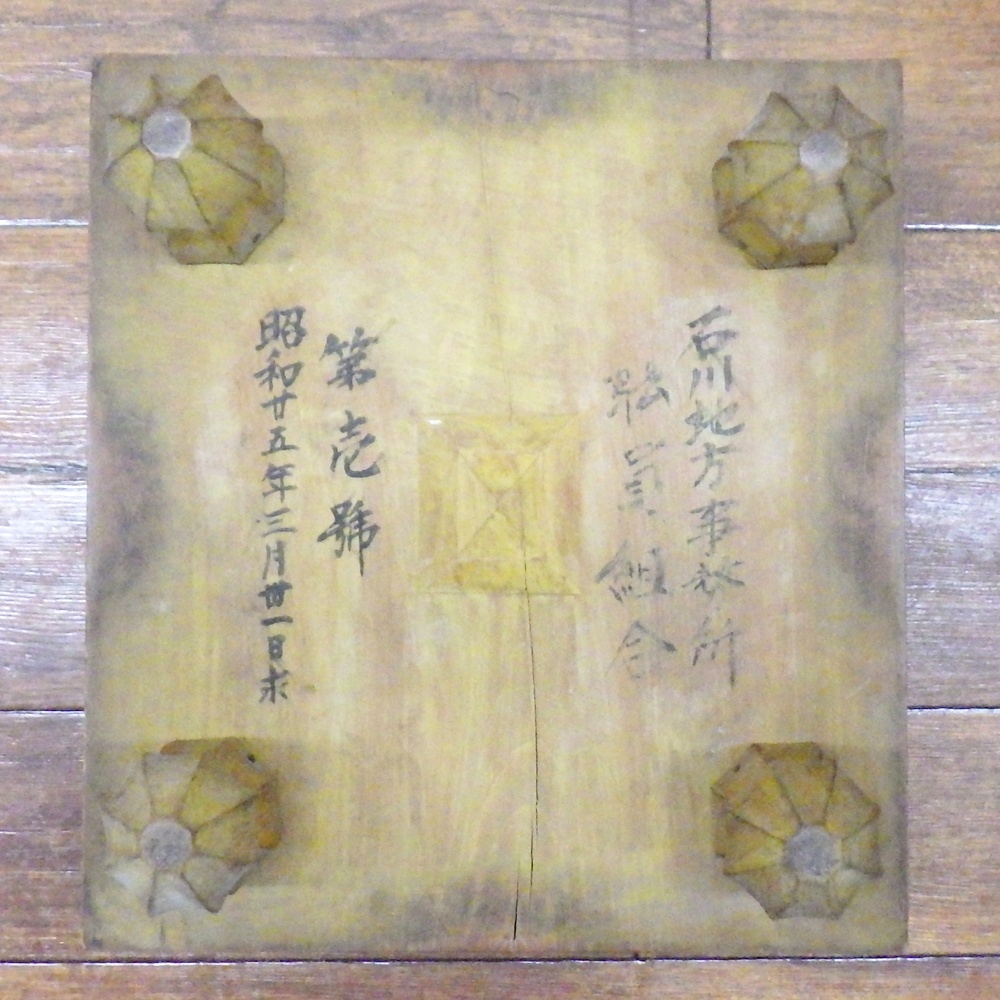 石川地方事務所
職員組合
第壱號
昭和廿五年三月卅一日求